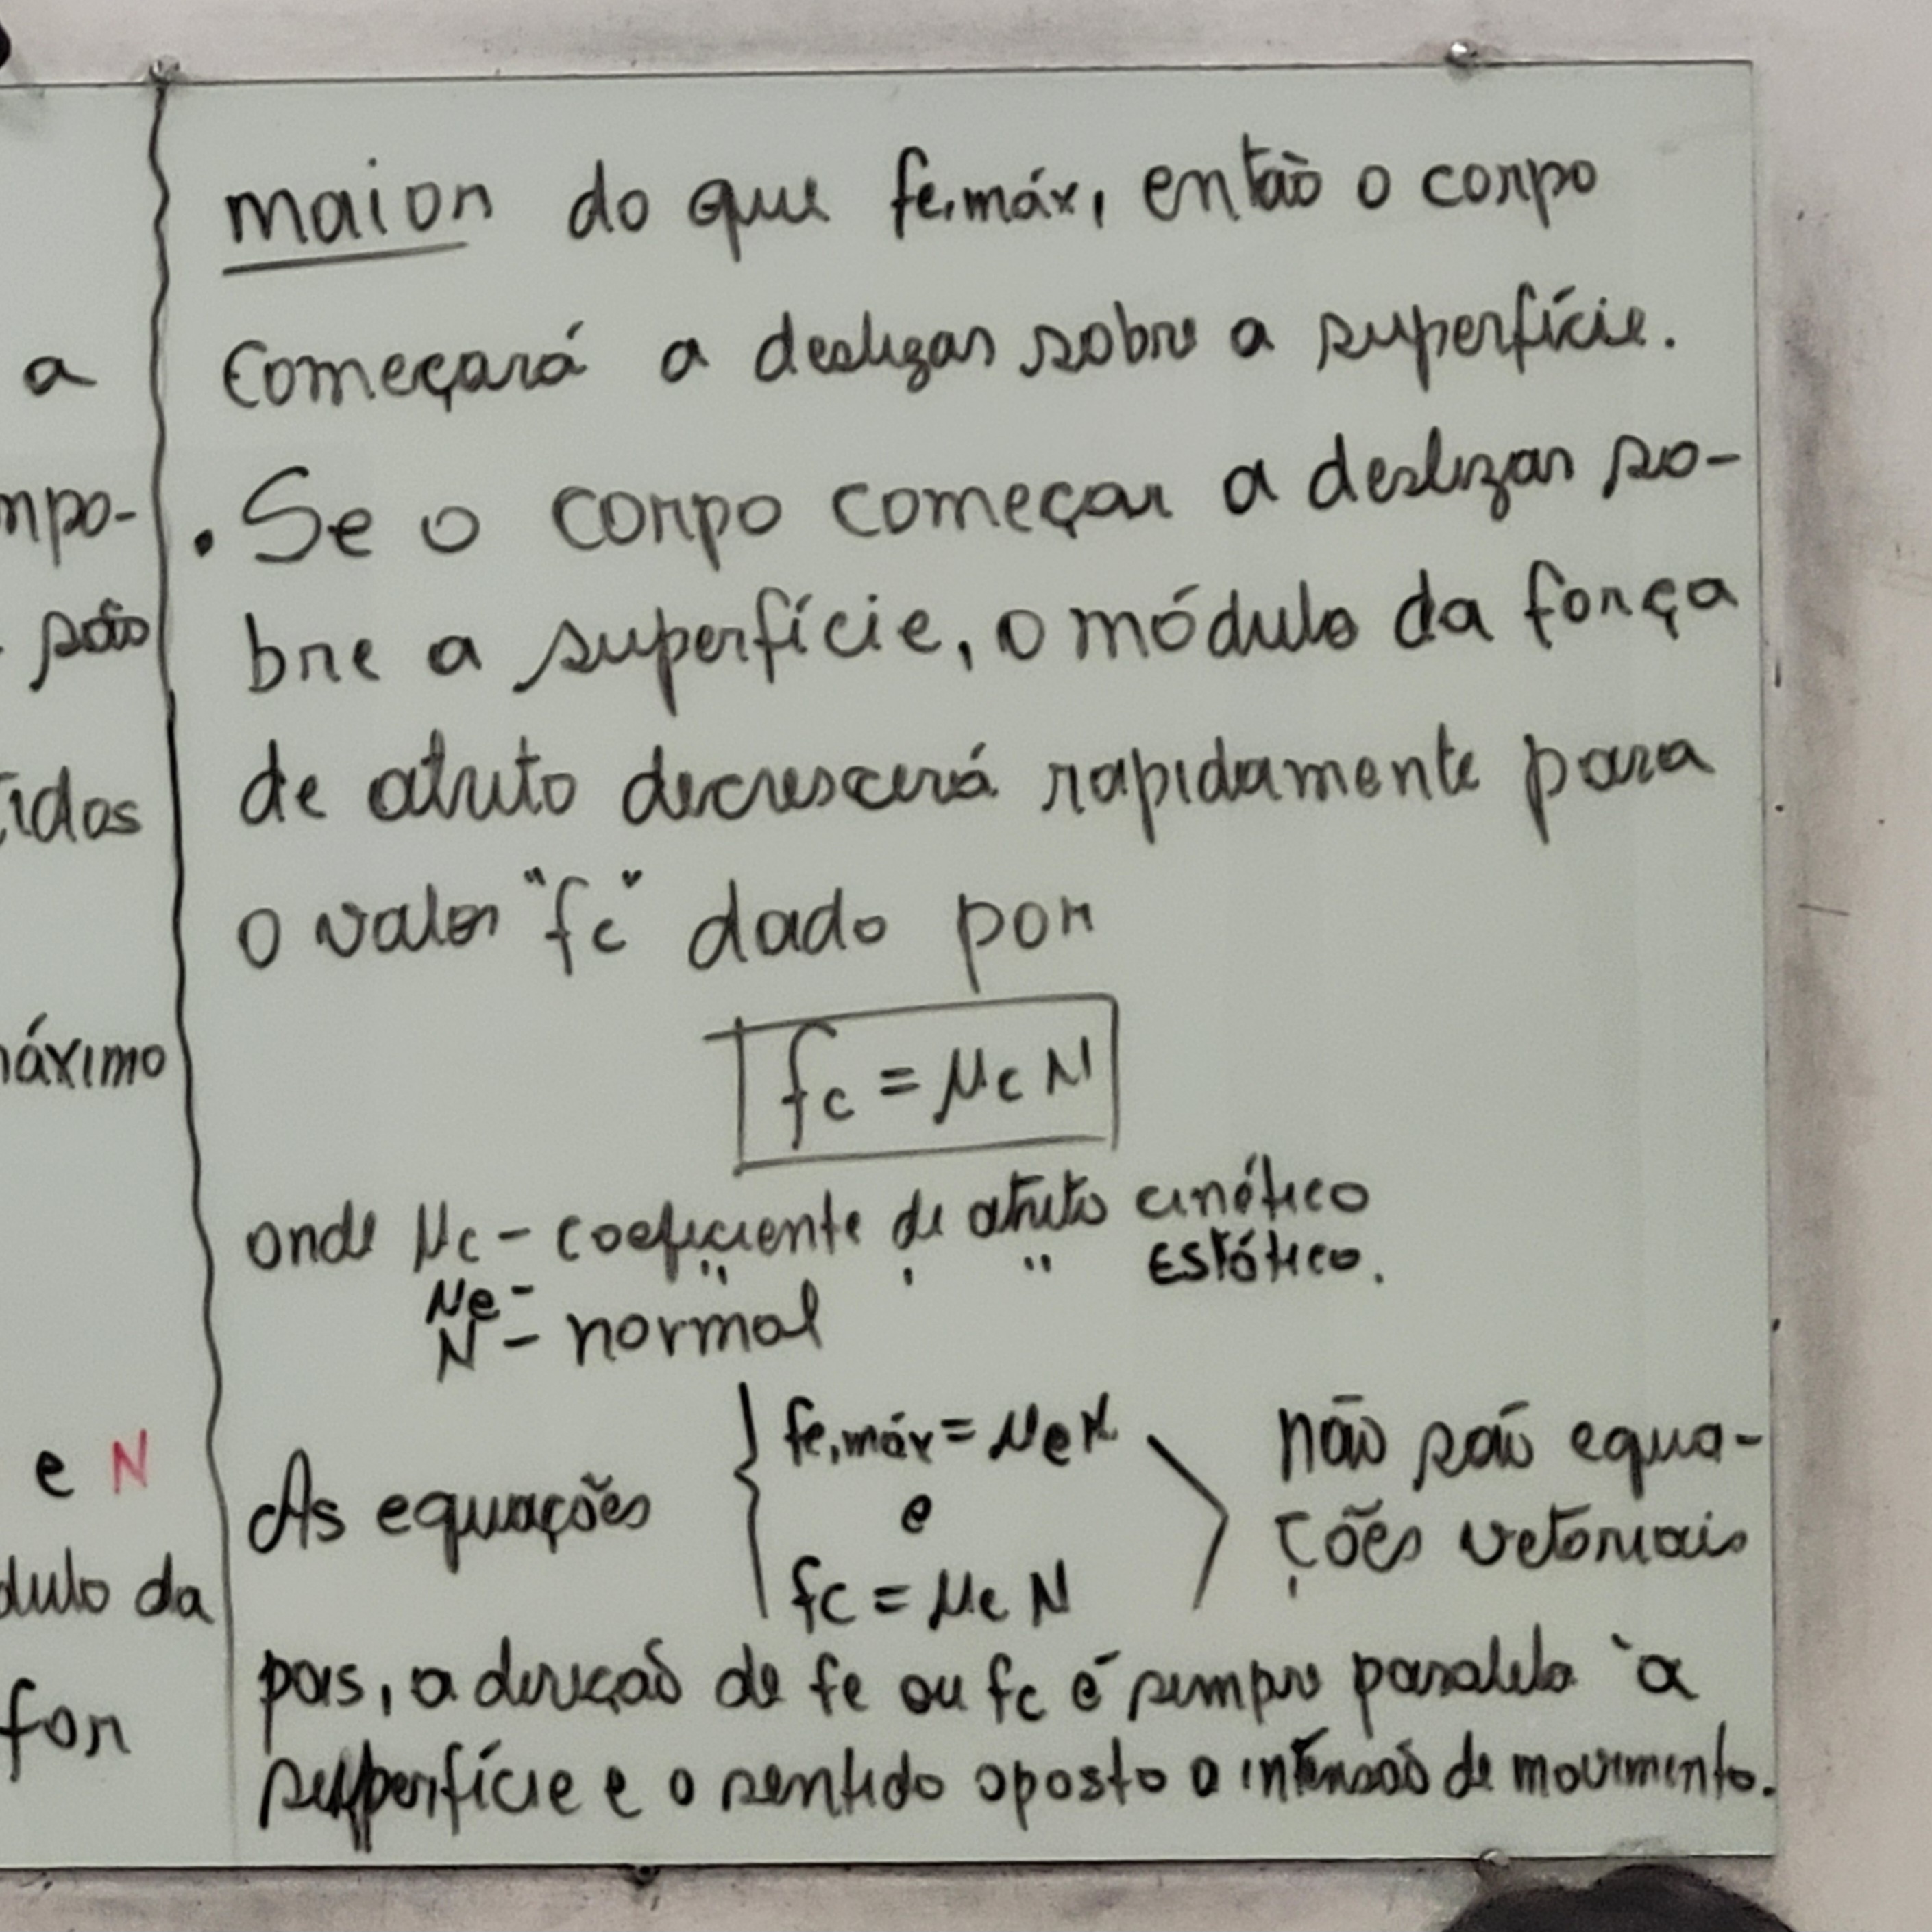 a
mpo-
são
tidos
máximo
e N
dulo da
for
maior do que fe,máx, então o corpo
começará a deslizar sobre a superfície.
. Se o corpo começar a deslizar so-
bre a superfície, o módulo da força
de atrito decrescerá rapidamente para
o valor "fc" dado por
fc = μc N
onde μc - coeficiente de atrito cinético
μe - " ' " estático.
N - normal
As equações { fe,máx = μe N
e
fc = μc N
não são equa-
ções vetoriais
pois, a direção de fe ou fc é sempre paralela à
superfície e o sentido oposto a intensão de movimento.